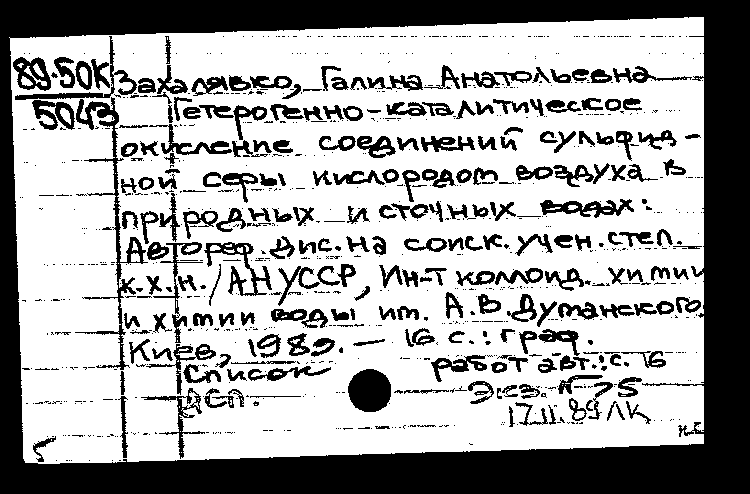 89-50К Захалявко, Галина Анатольевна
5043 Гетерогенно-каталитическое
окисление соединений сульфид-
ной серы кислородом воздуха в
природных и сточных водах:
Автореф. дис. на соиск. учен. степ.
к.х.н. / АН УССР, Ин-т коллоид. химии
и химии воды им. А.В. Думанского.
Киев, 1989. — 16 с. : граф.
Список работ авт.: с. 16
ДСП. Экз. № 75
17.11.89 ЛК